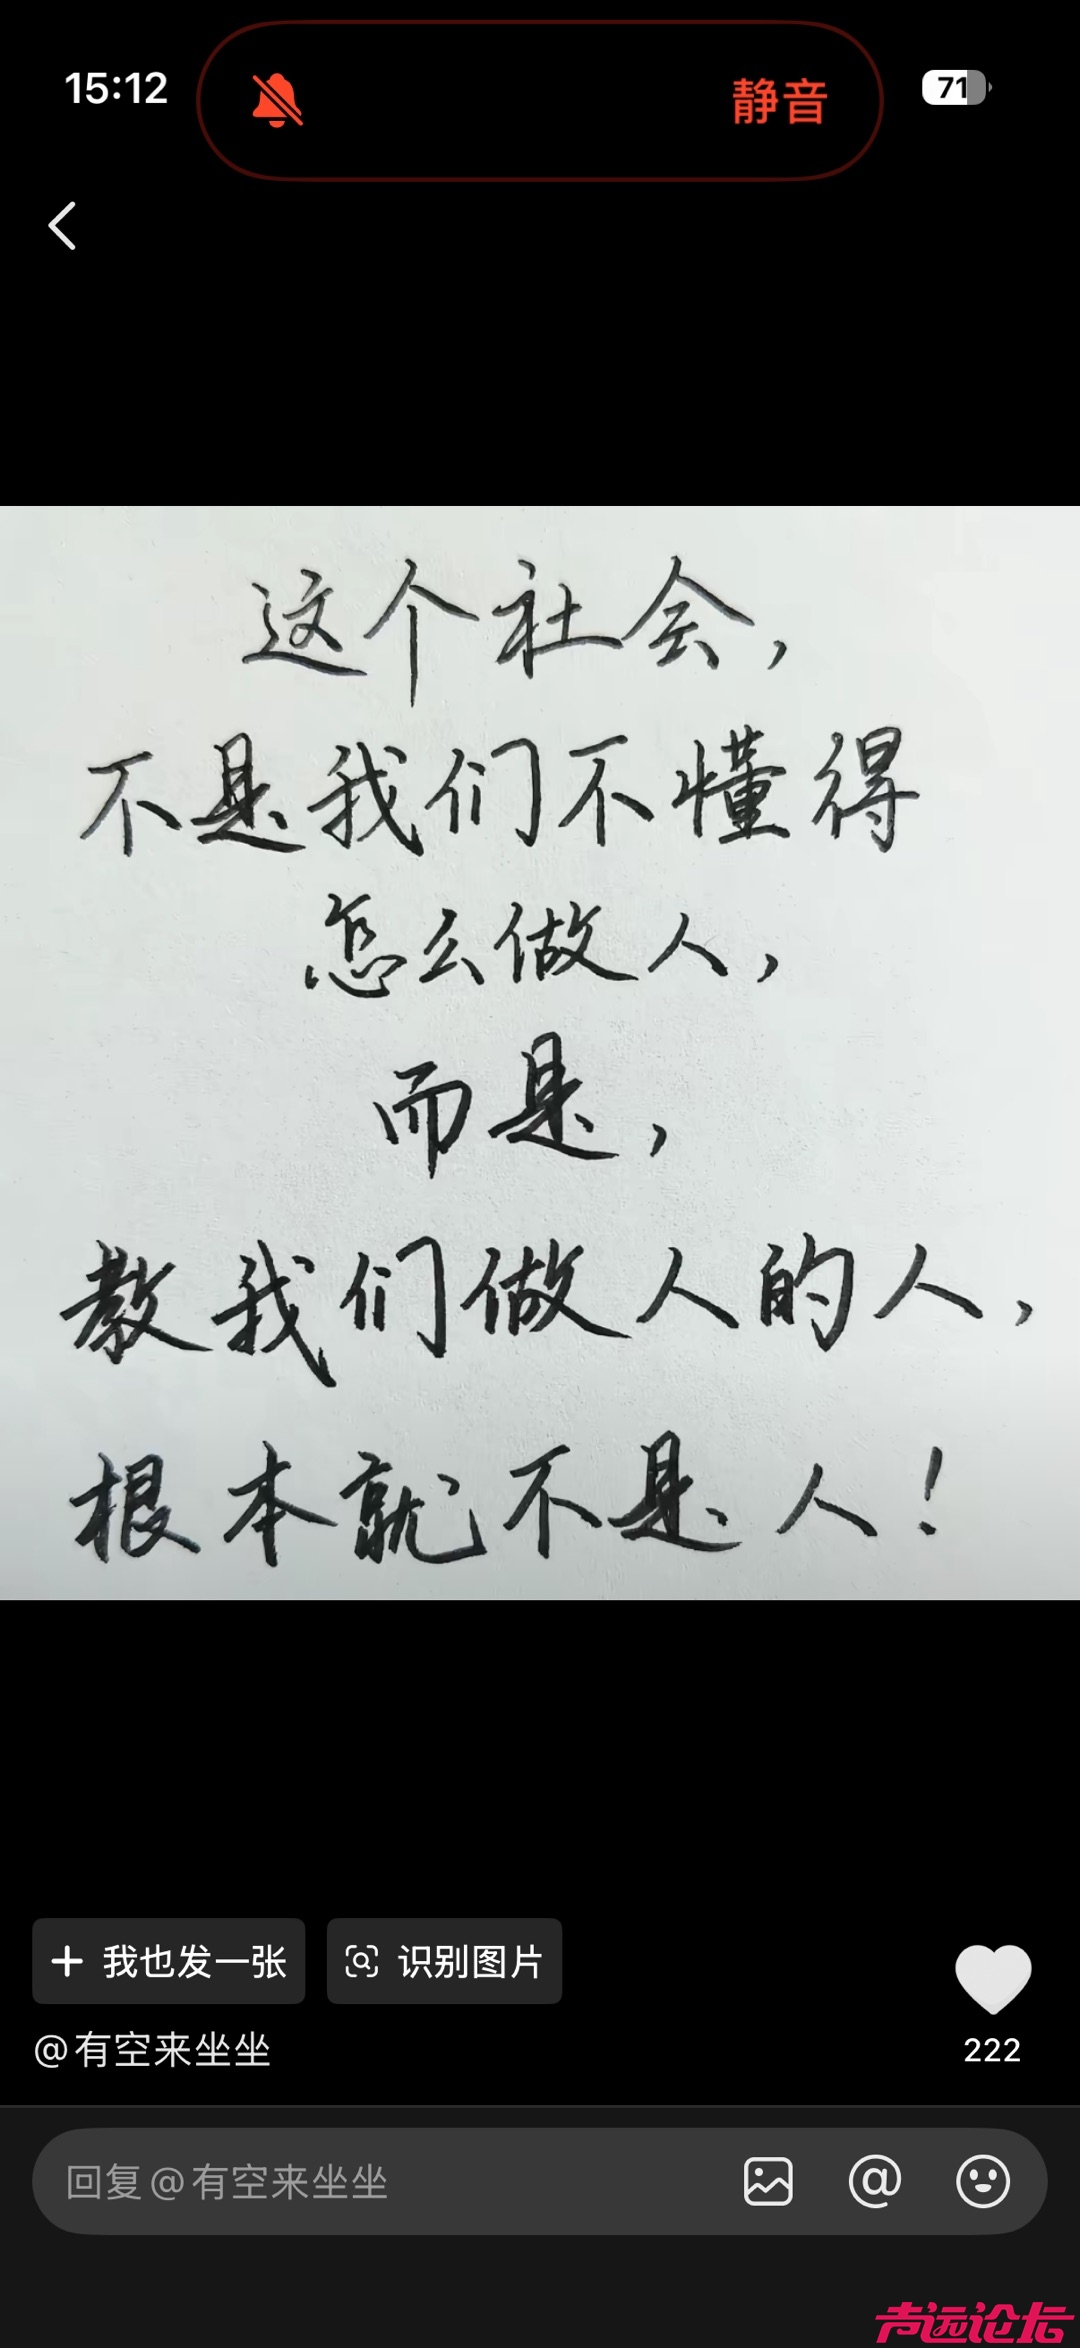 15:12
静音
71
这个社会,
不是我们不懂得
怎么做人,
而是,
教我们做人的人,
根本就不是人!
我也发一张
识别图片
@有空来坐坐
222
回复@有空来坐坐
声远论坛